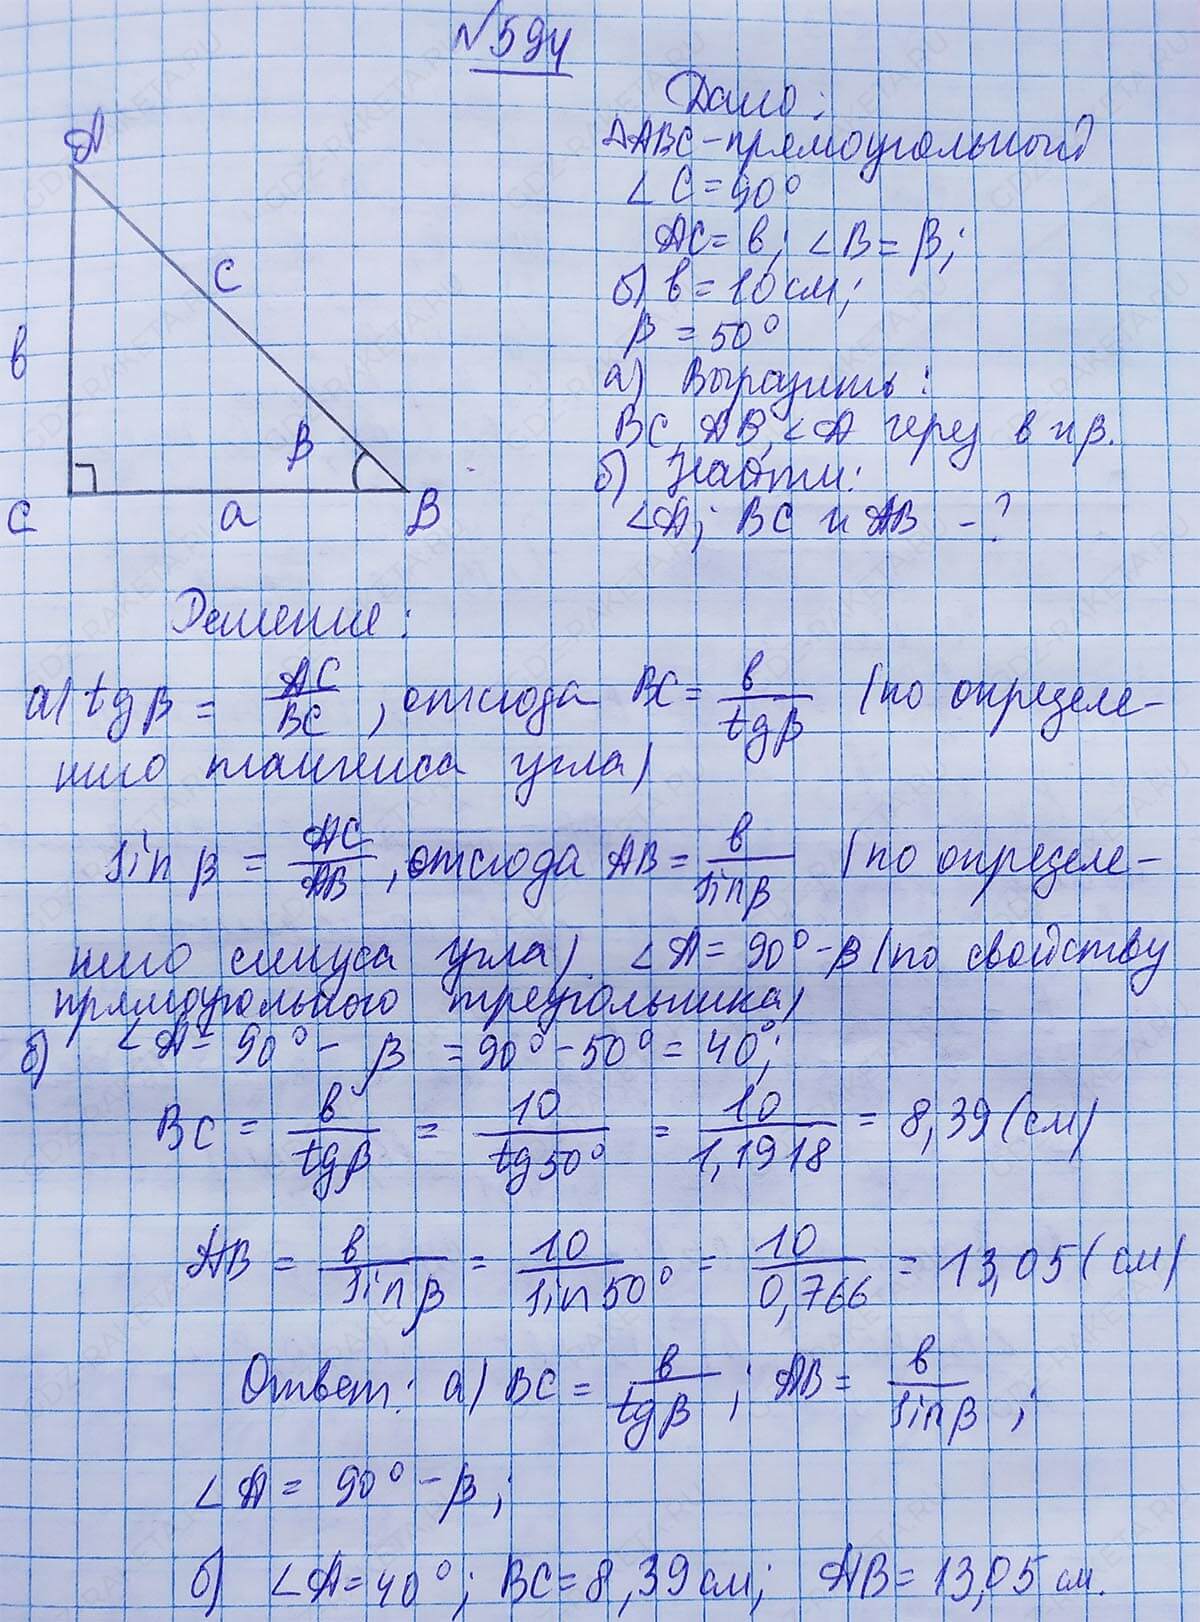 №594
Дано:
ΔABC - прямоугольный
∠C = 90°
AC = в; ∠B = β;
б) в = 10 см;
β = 50°
а) Выразить:
BC, AB, ∠A через в и β.
б) Найти:
∠A; BC и AB - ?
A
c
в
β
C
a
B
Решение:
а) tgβ = AC/BC, отсюда BC = в/tgβ (по определе-
нию тангенса угла)
sinβ = AC/AB, отсюда AB = в/sinβ (по определе-
нию синуса угла). ∠A = 90° - β (по свойству
прямоугольного треугольника)
б) ∠A = 90° - β = 90° - 50° = 40°;
BC = в/tgβ = 10/tg50° = 10/1,1918 = 8,39 (см)
AB = в/sinβ = 10/sin50° = 10/0,766 = 13,05 (см)
Ответ: а) BC = в/tgβ; AB = в/sinβ;
∠A = 90° - β;
б) ∠A = 40°; BC = 8,39 см; AB = 13,05 см.